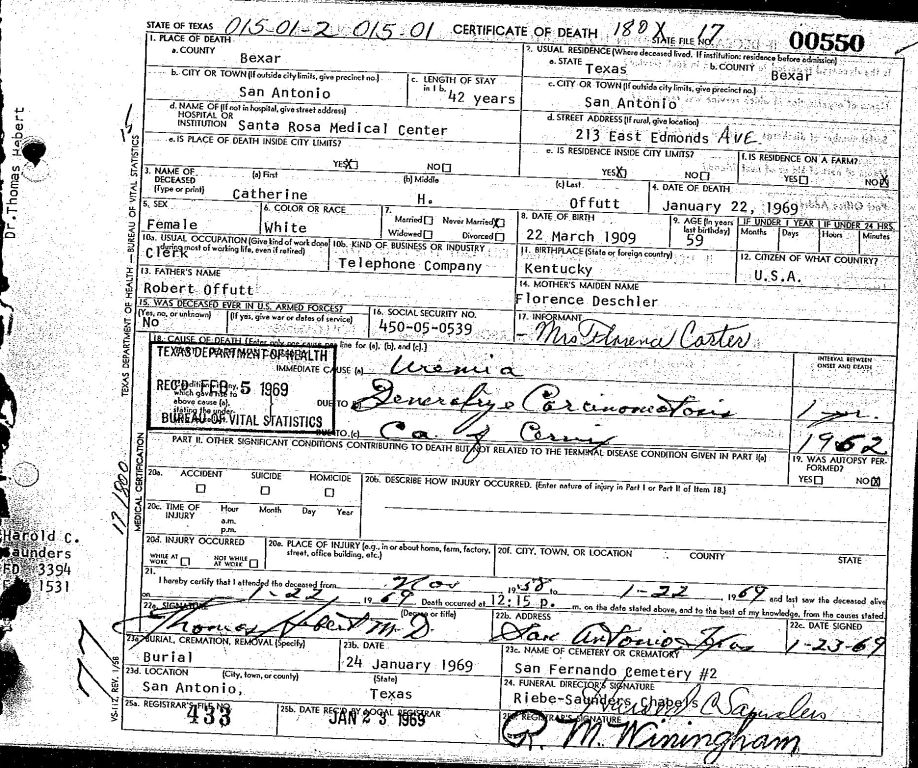 STATE OF TEXAS 015-01-2 015-01 CERTIFICATE OF DEATH 180X STATE FILE NO. 17 00550
1. PLACE OF DEATH
a. COUNTY
Bexar
2. USUAL RESIDENCE (Where deceased lived. If institution: residence before admission)
a. STATE Texas b. COUNTY Bexar
b. CITY OR TOWN (If outside city limits, give precinct no.)
San Antonio
c. LENGTH OF STAY in 1 b.
42 years
c. CITY OR TOWN (If outside city limits, give precinct no.)
San Antonio
d. NAME OF (If not in hospital, give street address)
HOSPITAL OR
INSTITUTION Santa Rosa Medical Center
d. STREET ADDRESS (If rural, give location)
213 East Edmonds AVE.
e. IS PLACE OF DEATH INSIDE CITY LIMITS?
YES X NO
e. IS RESIDENCE INSIDE CITY LIMITS?
YES X NO
f. IS RESIDENCE ON A FARM?
YES NO X
3. NAME OF
DECEASED
(Type or print)
(a) First (b) Middle (c) Last
Catherine H. Offutt
4. DATE OF DEATH
January 22, 1969
5. SEX
Female
6. COLOR OR RACE
White
7.
Married Never Married X
Widowed Divorced
8. DATE OF BIRTH
22 March 1909
9. AGE (In years last birthday)
59
IF UNDER 1 YEAR IF UNDER 24 HRS.
Months Days Hours Minutes
10a. USUAL OCCUPATION (Give kind of work done
during most of working life, even if retired)
Clerk
10b. KIND OF BUSINESS OR INDUSTRY
Telephone Company
11. BIRTHPLACE (State or foreign country)
Kentucky
12. CITIZEN OF WHAT COUNTRY?
U.S.A.
13. FATHER'S NAME
Robert Offutt
14. MOTHER'S MAIDEN NAME
Florence Deschler
15. WAS DECEASED EVER IN U.S. ARMED FORCES?
(Yes, no, or unknown) (If yes, give war or dates of service)
No
16. SOCIAL SECURITY NO.
450-05-0539
17. INFORMANT
Mrs Carter
18. CAUSE OF DEATH [Enter only one cause per line for (a), (b), and (c).]
INTERVAL BETWEEN
ONSET AND DEATH
TEXAS DEPARTMENT OF HEALTH
REC'D FEB 5 1969
BUREAU OF VITAL STATISTICS
IMMEDIATE CAUSE (a) Uremia
which gave rise to
above cause (a),
stating the under-
DUE TO Carcinomatosis 1 yr.
DUE TO (c) Ca. of Cervix 1962
PART II. OTHER SIGNIFICANT CONDITIONS CONTRIBUTING TO DEATH BUT NOT RELATED TO THE TERMINAL DISEASE CONDITION GIVEN IN PART I(a)
19. WAS AUTOPSY PER-
FORMED?
YES NO X
20a. ACCIDENT SUICIDE HOMICIDE
20b. DESCRIBE HOW INJURY OCCURRED. (Enter nature of injury in Part I or Part II of Item 18.)
20c. TIME OF
INJURY
Hour Month Day Year
a.m.
p.m.
20d. INJURY OCCURRED
WHILE AT
WORK
NOT WHILE
AT WORK
20e. PLACE OF INJURY (e.g., in or about home, farm, factory,
street, office building, etc.)
20f. CITY, TOWN, OR LOCATION COUNTY STATE
21.
I hereby certify that I attended the deceased from Nov 1958 to 1-22 1969 and last saw the deceased alive
on 1-22 1969 Death occurred at 12:15 p. m. on the date stated above, and to the best of my knowledge, from the causes stated.
22a. SIGNATURE (Degree or title)
Thomas Hebert M D.
22b. ADDRESS
San Antonio, Texas
22c. DATE SIGNED
1-23-69
23a. BURIAL, CREMATION, REMOVAL (Specify)
Burial
23b. DATE
24 January 1969
23c. NAME OF CEMETERY OR CREMATORY
San Fernando Cemetery #2
23d. LOCATION (City, town, or county) (State)
San Antonio, Texas
24. FUNERAL DIRECTOR'S SIGNATURE
Riebe-Saunders Chapels Harold C Saunders
25a. REGISTRAR'S FILE NO.
433
25b. DATE REC'D BY LOCAL REGISTRAR
JAN 23 1969
25c. REGISTRAR'S SIGNATURE
R. M. Winingham
Dr. Thomas Hebert
TEXAS DEPARTMENT OF HEALTH — BUREAU OF VITAL STATISTICS
MEDICAL CERTIFICATION
Harold C.
Saunders
3394
1531
77
VS-112, REV. 1/58